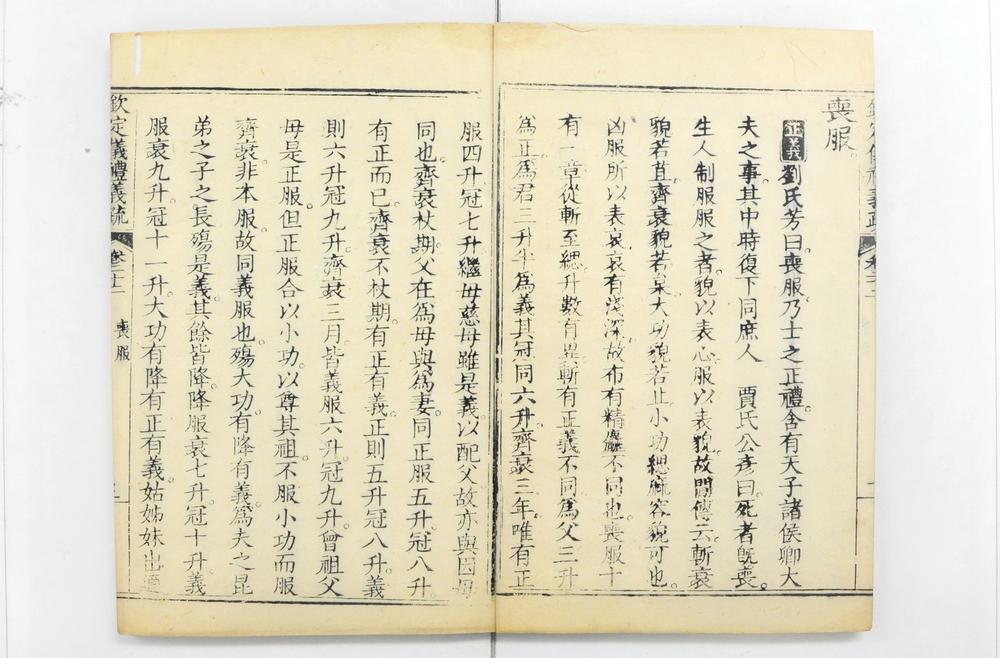 喪服
正義劉氏芳曰喪服乃士之正禮含有天子諸侯卿大
夫之事其中時復下同庶人　賈氏公彥曰死者既喪
生人制服服之者貌以表心服以表貌故間傳云斬衰
貌若苴齊衰貌若枲大功貌若止小功緦麻容貌可也
凶服所以表哀哀有淺深故布有精麤不同也喪服十
有一章從斬至緦升數有異斬有正義不同為父三升
為正為君三升半為義其冠同六升齊衰三年唯有正
服四升冠七升繼母慈母雖是義以配父故亦與因母
同也齊衰杖期父在為母與為妻同正服五升冠八升
有正而已齊衰不杖期有正有義正則五升冠八升義
則六升冠九升齊衰三月皆義服六升冠九升曾祖父
母是正服但正服合以小功以尊其祖不服小功而服
齊衰非本服故同義服也殤大功有降有義為夫之昆
弟之子之長殤是義其餘皆降降服衰七升冠十升義
服衰九升冠十一升大功有降有正有義姑姊妹出適
欽定儀禮義疏
喪服